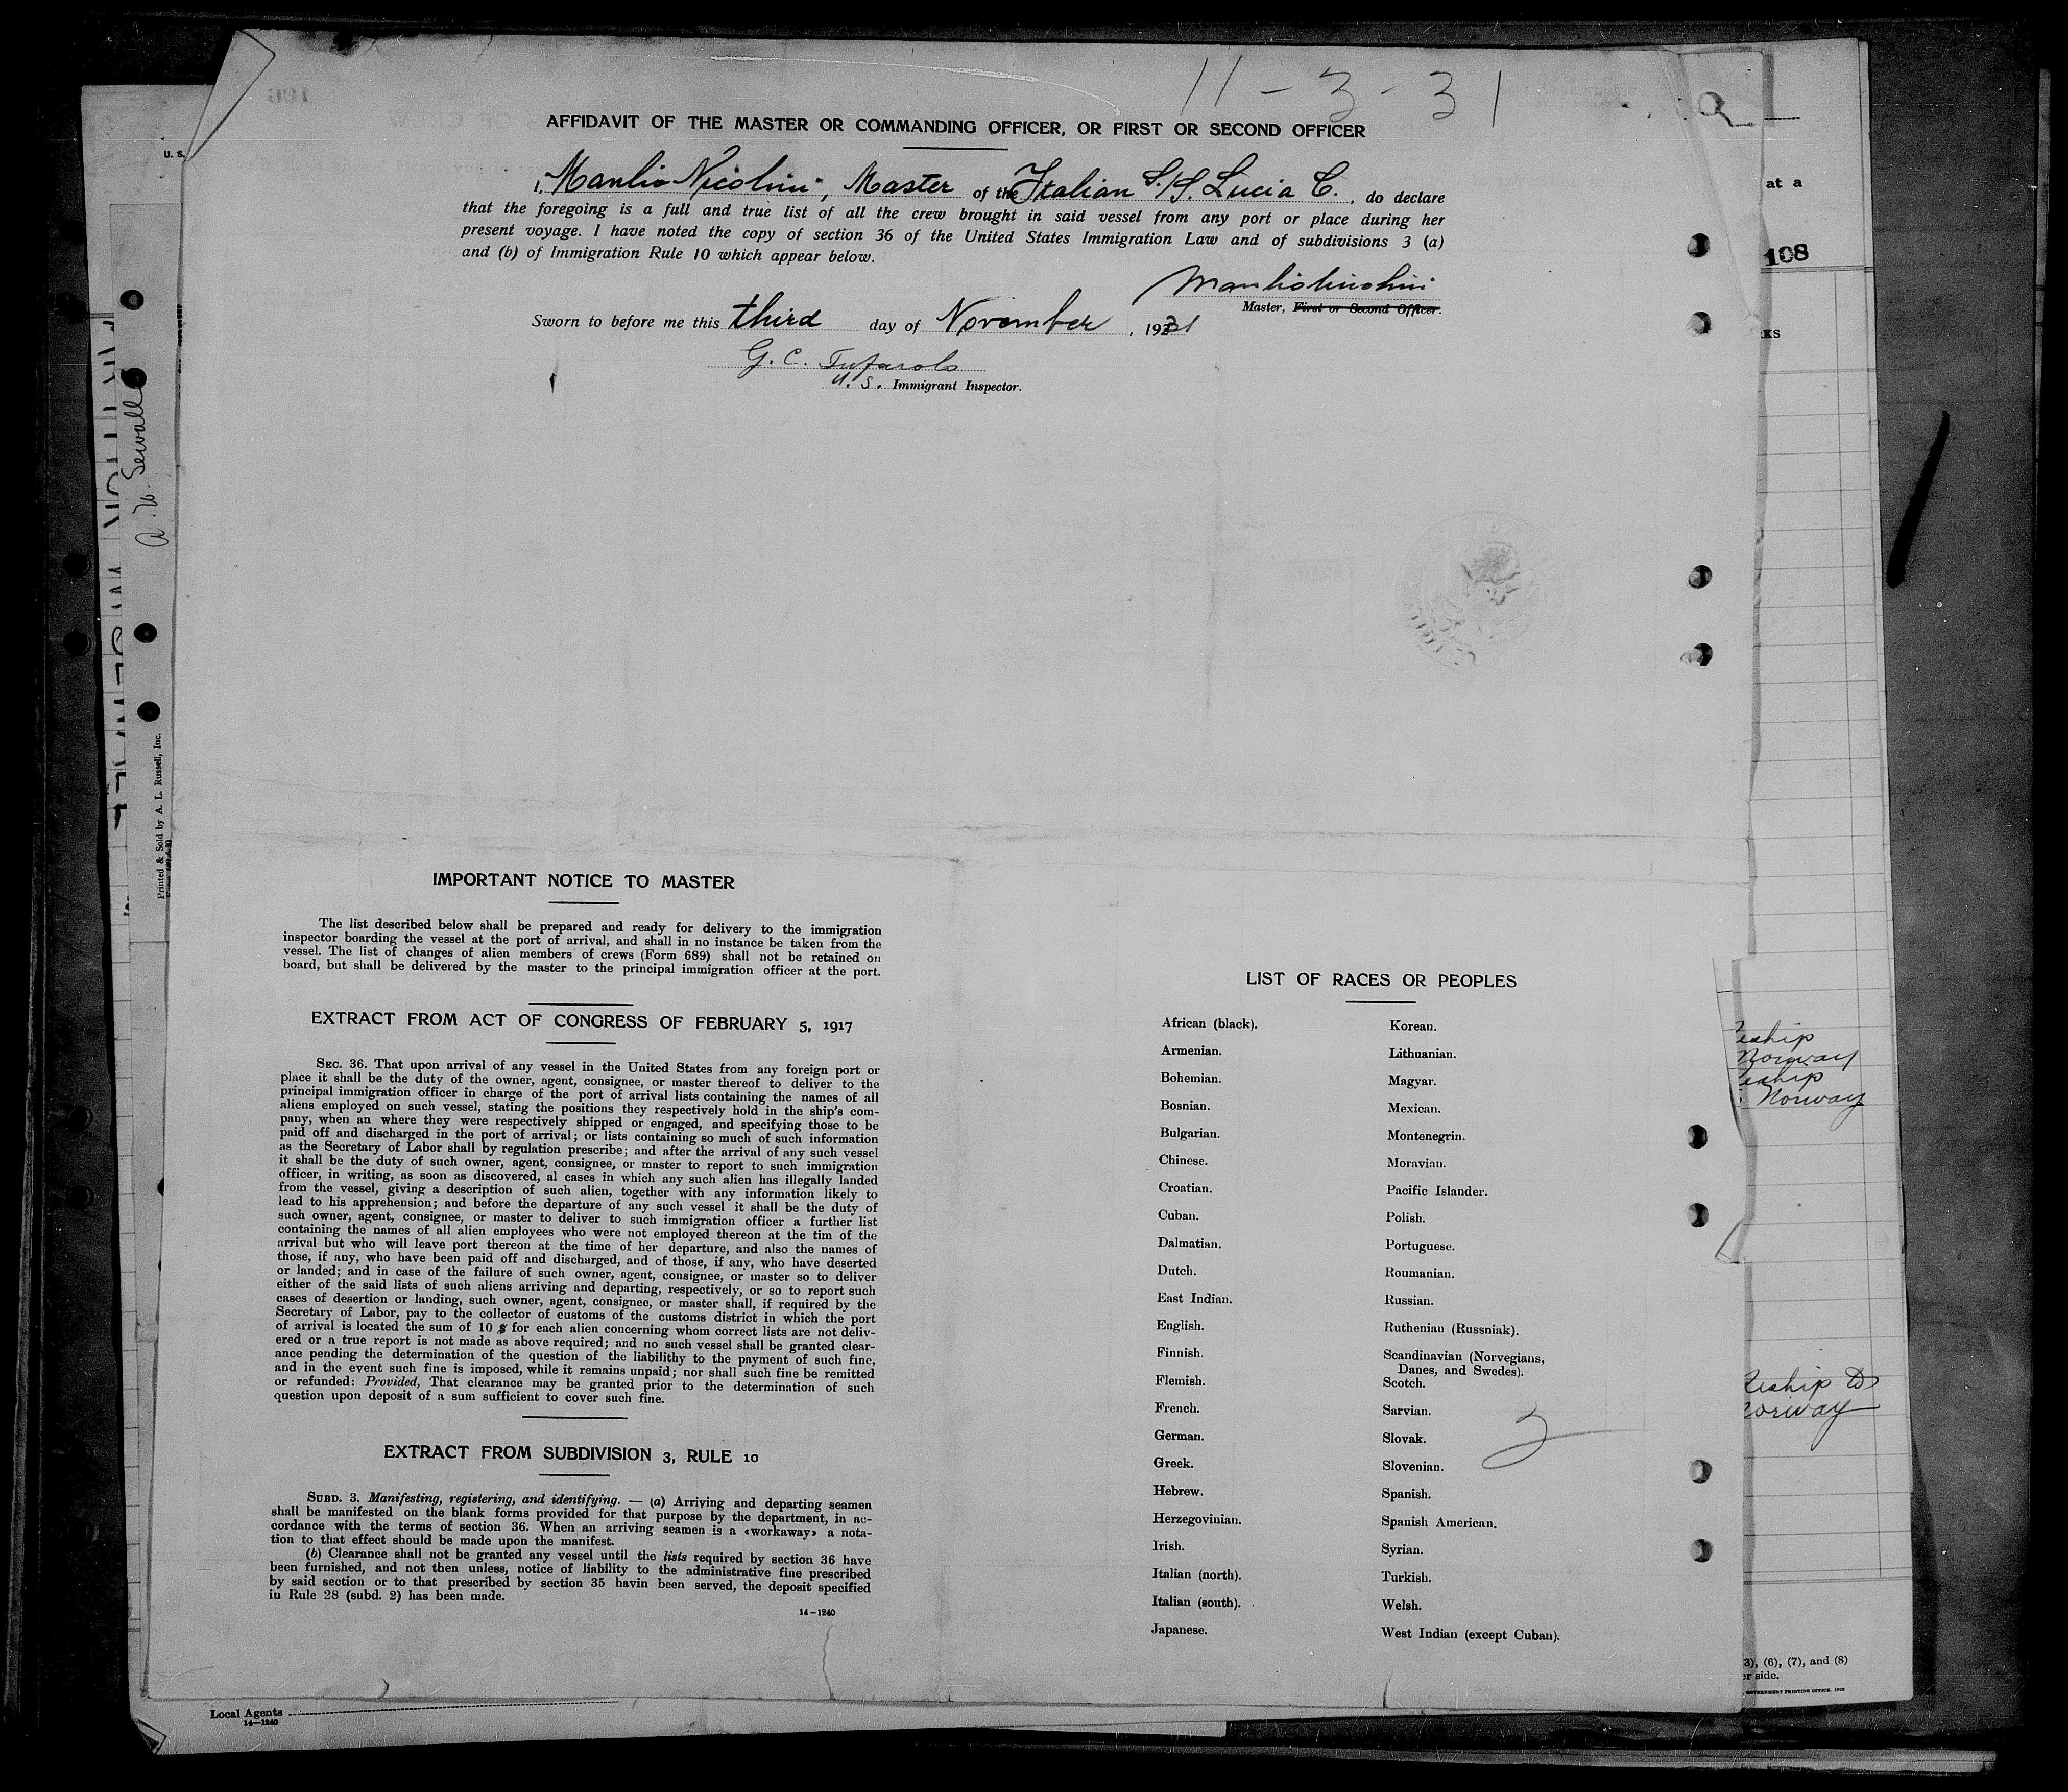 11-3-31
AFFIDAVIT OF THE MASTER OR COMMANDING OFFICER, OR FIRST OR SECOND OFFICER
I, Manlio Nicolini, Master of the Italian S/S. Lucia C., do declare
that the foregoing is a full and true list of all the crew brought in said vessel from any port or place during her
present voyage. I have noted the copy of section 36 of the United States Immigration Law and of subdivisions 3 (a)
and (b) of Immigration Rule 10 which appear below.
Master, First or Second Officer.
Sworn to before me this third day of November, 1931
G. C. Tufarolo
U. S. Immigrant Inspector.
IMPORTANT NOTICE TO MASTER
The list described below shall be prepared and ready for delivery to the immigration
inspector boarding the vessel at the port of arrival, and shall in no instance be taken from the
vessel. The list of changes of alien members of crews (Form 689) shall not be retained on
board, but shall be delivered by the master to the principal immigration officer at the port.
EXTRACT FROM ACT OF CONGRESS OF FEBRUARY 5, 1917
SEC. 36. That upon arrival of any vessel in the United States from any foreign port or
place it shall be the duty of the owner, agent, consignee, or master thereof to deliver to the
principal immigration officer in charge of the port of arrival lists containing the names of all
aliens employed on such vessel, stating the positions they respectively hold in the ship's com-
pany, when an where they were respectively shipped or engaged, and specifying those to be
paid off and discharged in the port of arrival; or lists containing so much of such information
as the Secretary of Labor shall by regulation prescribe; and after the arrival of any such vessel
it shall be the duty of such owner, agent, consignee, or master to report to such immigration
officer, in writing, as soon as discovered, al cases in which any such alien has illegally landed
from the vessel, giving a description of such alien, together with any information likely to
lead to his apprehension; and before the departure of any such vessel it shall be the duty of
such owner, agent, consignee, or master to deliver to such immigration officer a further list
containing the names of all alien employees who were not employed thereon at the tim of the
arrival but who will leave port thereon at the time of her departure, and also the names of
those, if any, who have been paid off and discharged, and of those, if any, who have deserted
or landed; and in case of the failure of such owner, agent, consignee, or master so to deliver
either of the said lists of such aliens arriving and departing, respectively, or so to report such
cases of desertion or landing, such owner, agent, consignee, or master shall, if required by the
Secretary of Labor, pay to the collector of customs of the customs district in which the port
of arrival is located the sum of 10 $ for each alien concerning whom correct lists are not deliv-
ered or a true report is not made as above required; and no such vessel shall be granted clear-
ance pending the determination of the question of the liabilithy to the payment of such fine,
and in the event such fine is imposed, while it remains unpaid; nor shall such fine be remitted
or refunded: Provided, That clearance may be granted prior to the determination of such
question upon deposit of a sum sufficient to cover such fine.
EXTRACT FROM SUBDIVISION 3, RULE 10
SUBD. 3. Manifesting, registering, and identifying. — (a) Arriving and departing seamen
shall be manifested on the blank forms provided for that purpose by the department, in ac-
cordance with the terms of section 36. When an arriving seamen is a «workaway» a nota-
tion to that effect should be made upon the manifest.
(b) Clearance shall not be granted any vessel until the lists required by section 36 have
been furnished, and not then unless, notice of liability to the administrative fine prescribed
by said section or to that prescribed by section 35 havin been served, the deposit specified
in Rule 28 (subd. 2) has been made.
14-1240
LIST OF RACES OR PEOPLES
African (black).
Armenian.
Bohemian.
Bosnian.
Bulgarian.
Chinese.
Croatian.
Cuban.
Dalmatian.
Dutch.
East Indian.
English.
Finnish.
Flemish.
French.
German.
Greek.
Hebrew.
Herzegovinian.
Irish.
Italian (north).
Italian (south).
Japanese.
Korean.
Lithuanian.
Magyar.
Mexican.
Montenegrin.
Moravian.
Pacific Islander.
Polish.
Portuguese.
Roumanian.
Russian.
Ruthenian (Russniak).
Scandinavian (Norvegians,
Danes, and Swedes).
Scotch.
Sarvian.
Slovak.
Slovenian.
Spanish.
Spanish American.
Syrian.
Turkish.
Welsh.
West Indian (except Cuban).
U. S.
A. W. Sewall
Printed & Sold by A. L. Russell, Inc.
Local Agents
14-1240
at a
108
KS
Norway
Norway
3), (6), (7), and (8)
er side.
GOVERNMENT PRINTING OFFICE